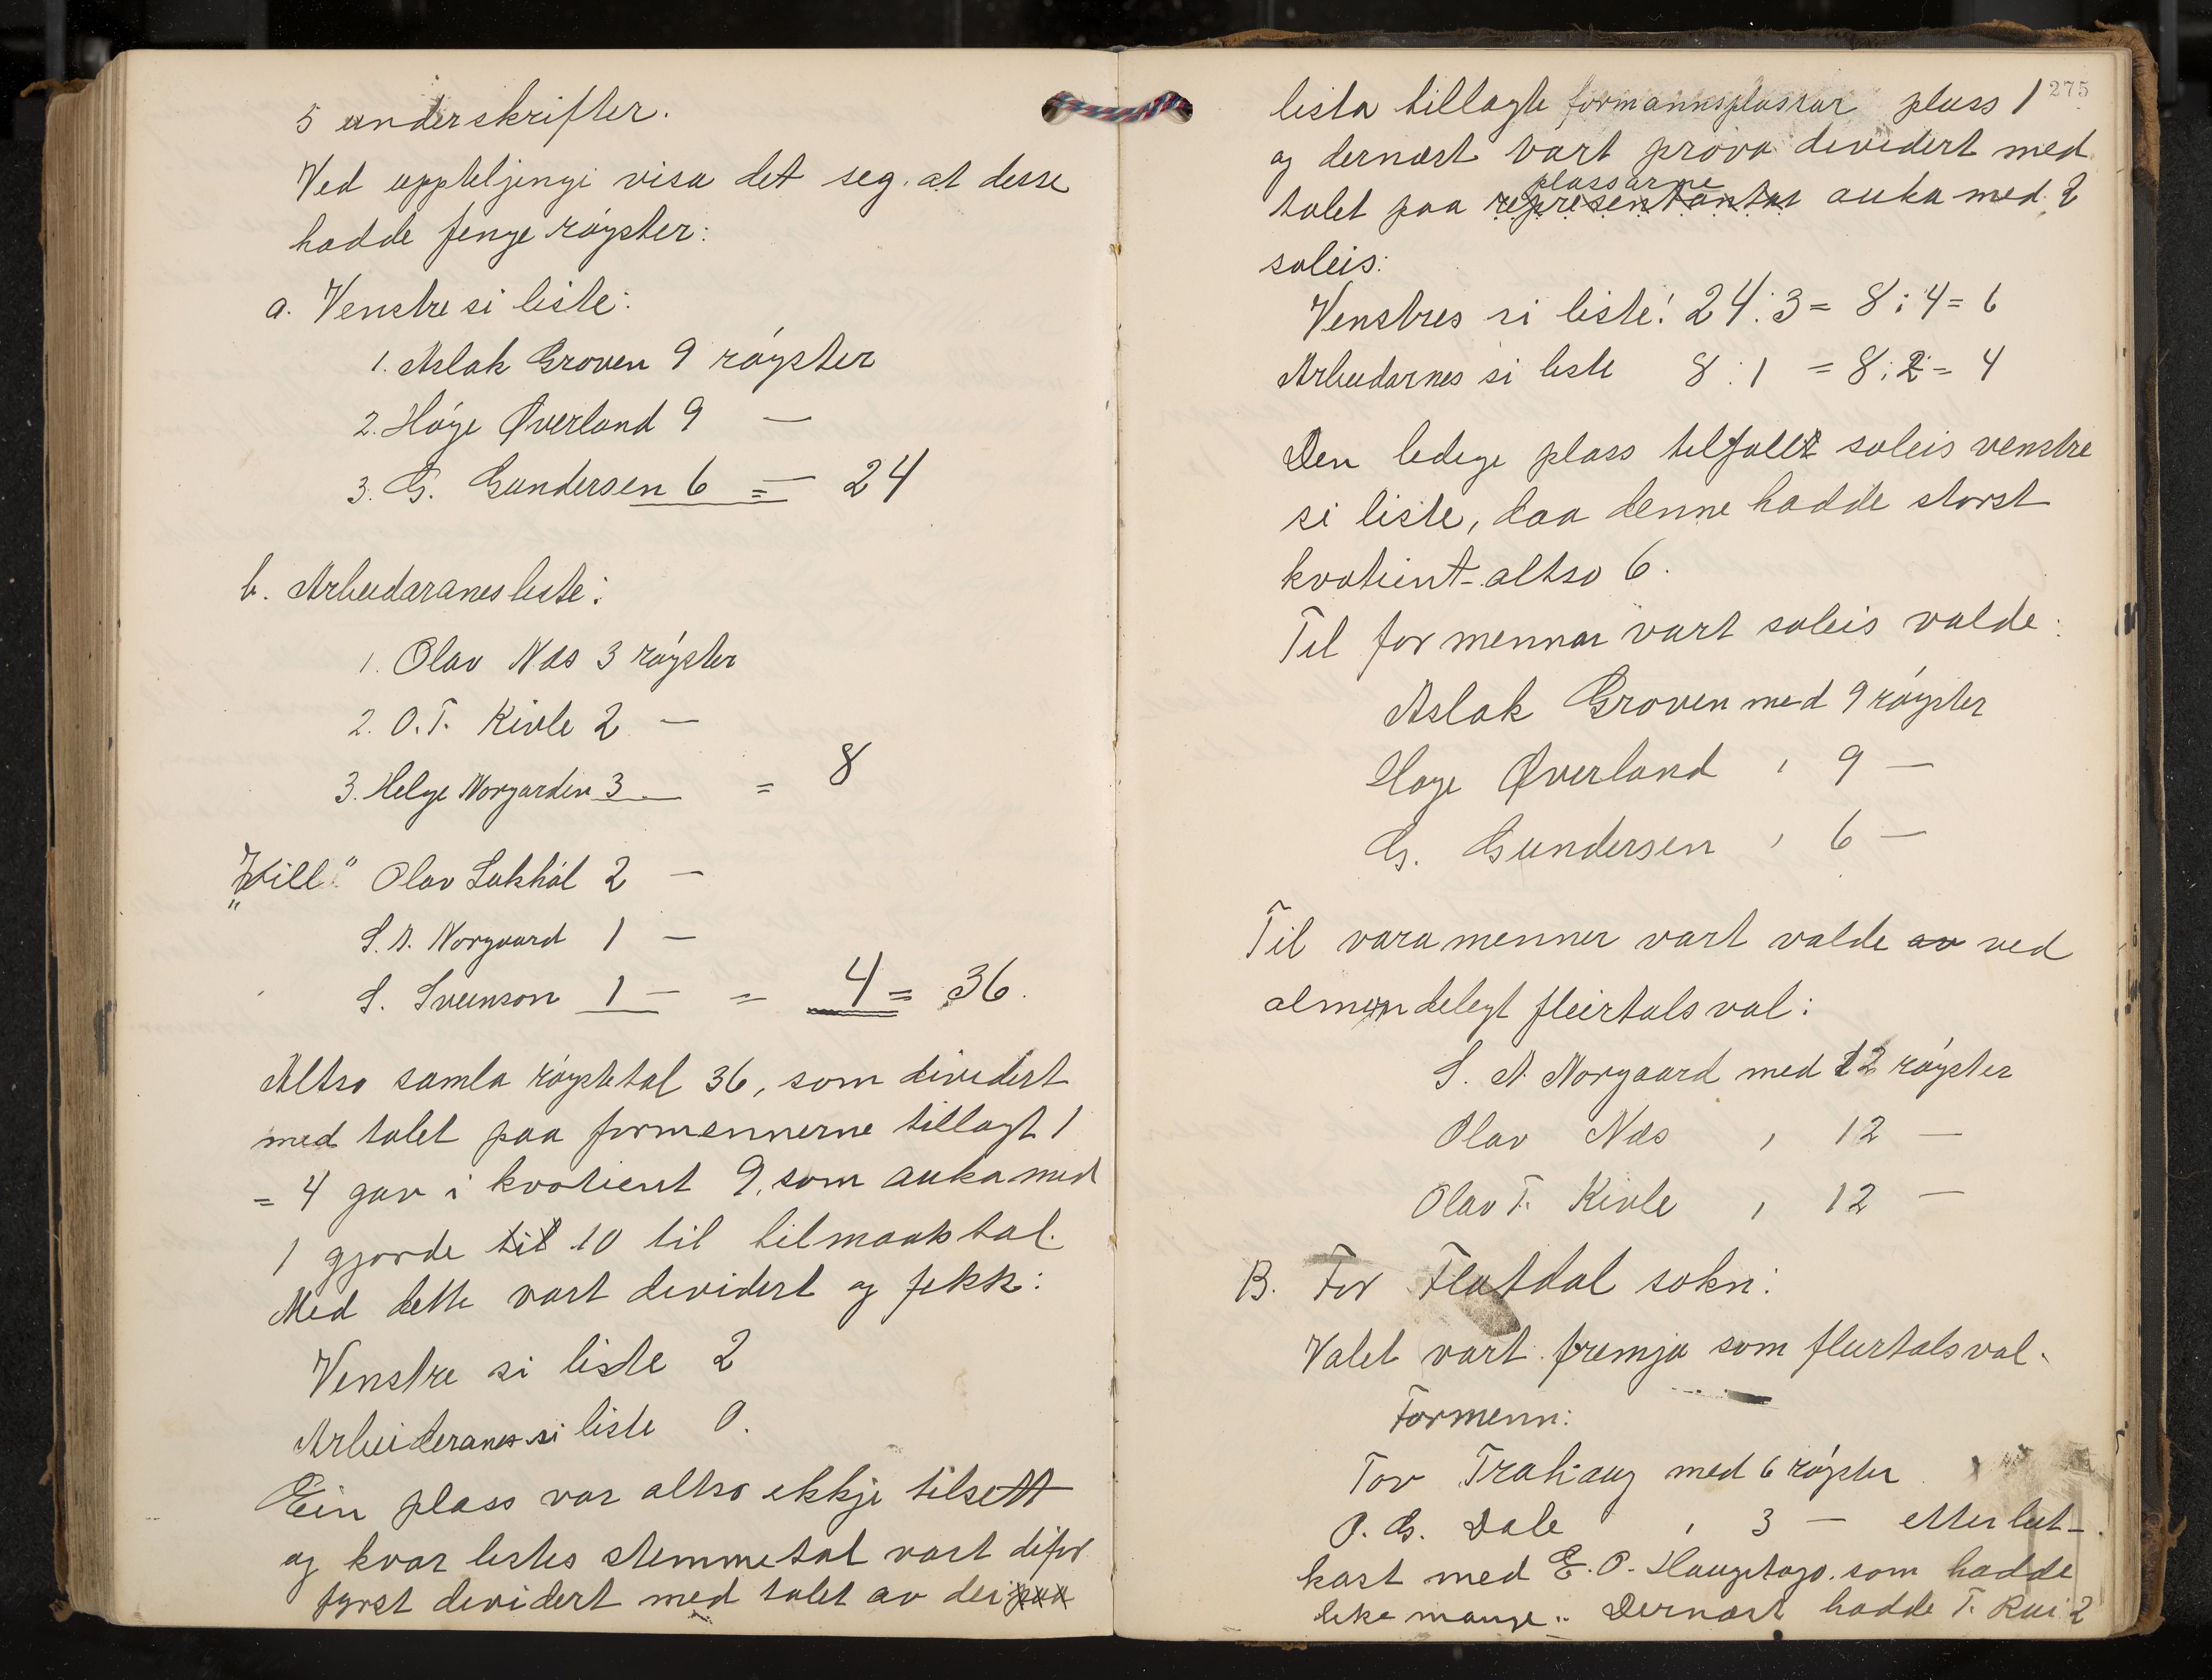 5 underskrifter.
Ved uppteljingi visa det seg, at desse
hadde fenge røyster:
a. Venstre si liste:
1. Aslak Groven 9 røyster
2. Høye Øverland 9 —
3. G. Gundersen 6 = — 24
b. Arbeidaranes liste:
1. Olav Næs 3 røyster
2. O. T. Kivle 2 —
3. Helge Norgarden 3 — = 8
"Vill" Olav Lukhól 2 —
S. A. Norgaard 1 —
S. Sveinson 1 — = 4 = 36.
Altso samla røystetal 36, som dividert
med talet paa formennerne tillagt 1
= 4 gav i kvotient 9, som auka med
1 gjorde til 10 til tilmaalstal.
Med dette vart dividert og fekk:
Venstre si liste 2
Arbeideranes si liste 0.
Ein plass var altso ikkje tilsett
og kvar listes stemmetal vart difor
fyrst dividert med talet av dei paa
275
lista tillagte formannsplassar pluss 1
og dernæst vart prøva dividert med
plassarne
talet paa representantar auka med 2
soleis:
Venstres si liste: 24:3 = 8 : 4 = 6
Arbeidarnes si liste 8 : 1 = 8 : 2 = 4
Den ledige plass tilfallt soleis venstre
si liste, daa denne hadde størst
kvotient - altso 6.
Til formennar vart soleis valde:
Aslak Groven med 9 røyster
Høye Øverland " 9 —
G. Gundersen " 6 —
Til varamenner vart valde av ved
almindelegt fleirtalsval:
S. A. Norgaard med 12 røyster
Olav Næs " 12 —
Olav T. Kivle " 12 —
B. For Flatdal sokn:
Valet vart fremja som fleirtalsval.
Formenn:
Tov Trahaug med 6 røyster
O. G. Dale " 3 — etter lut-
kast med E. O. som hadde
like mange. Dernæst hadde T. Rui 2